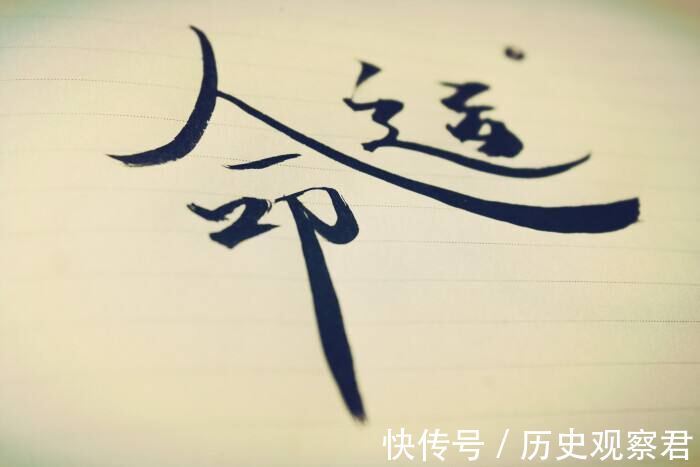 命运
快传号/历史观察君